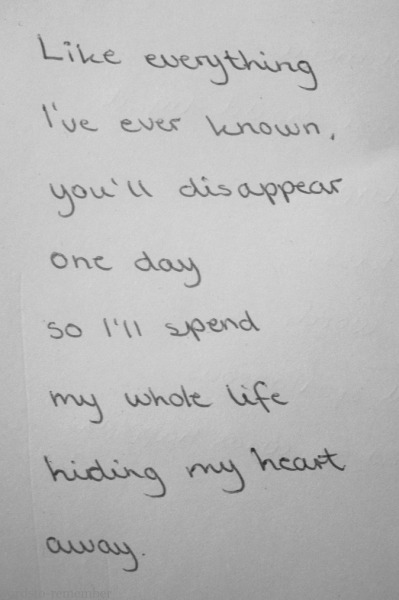 Like everything
I've ever known,
you'll disappear
one day
so I'll spend
my whole life
hiding my heart
away.